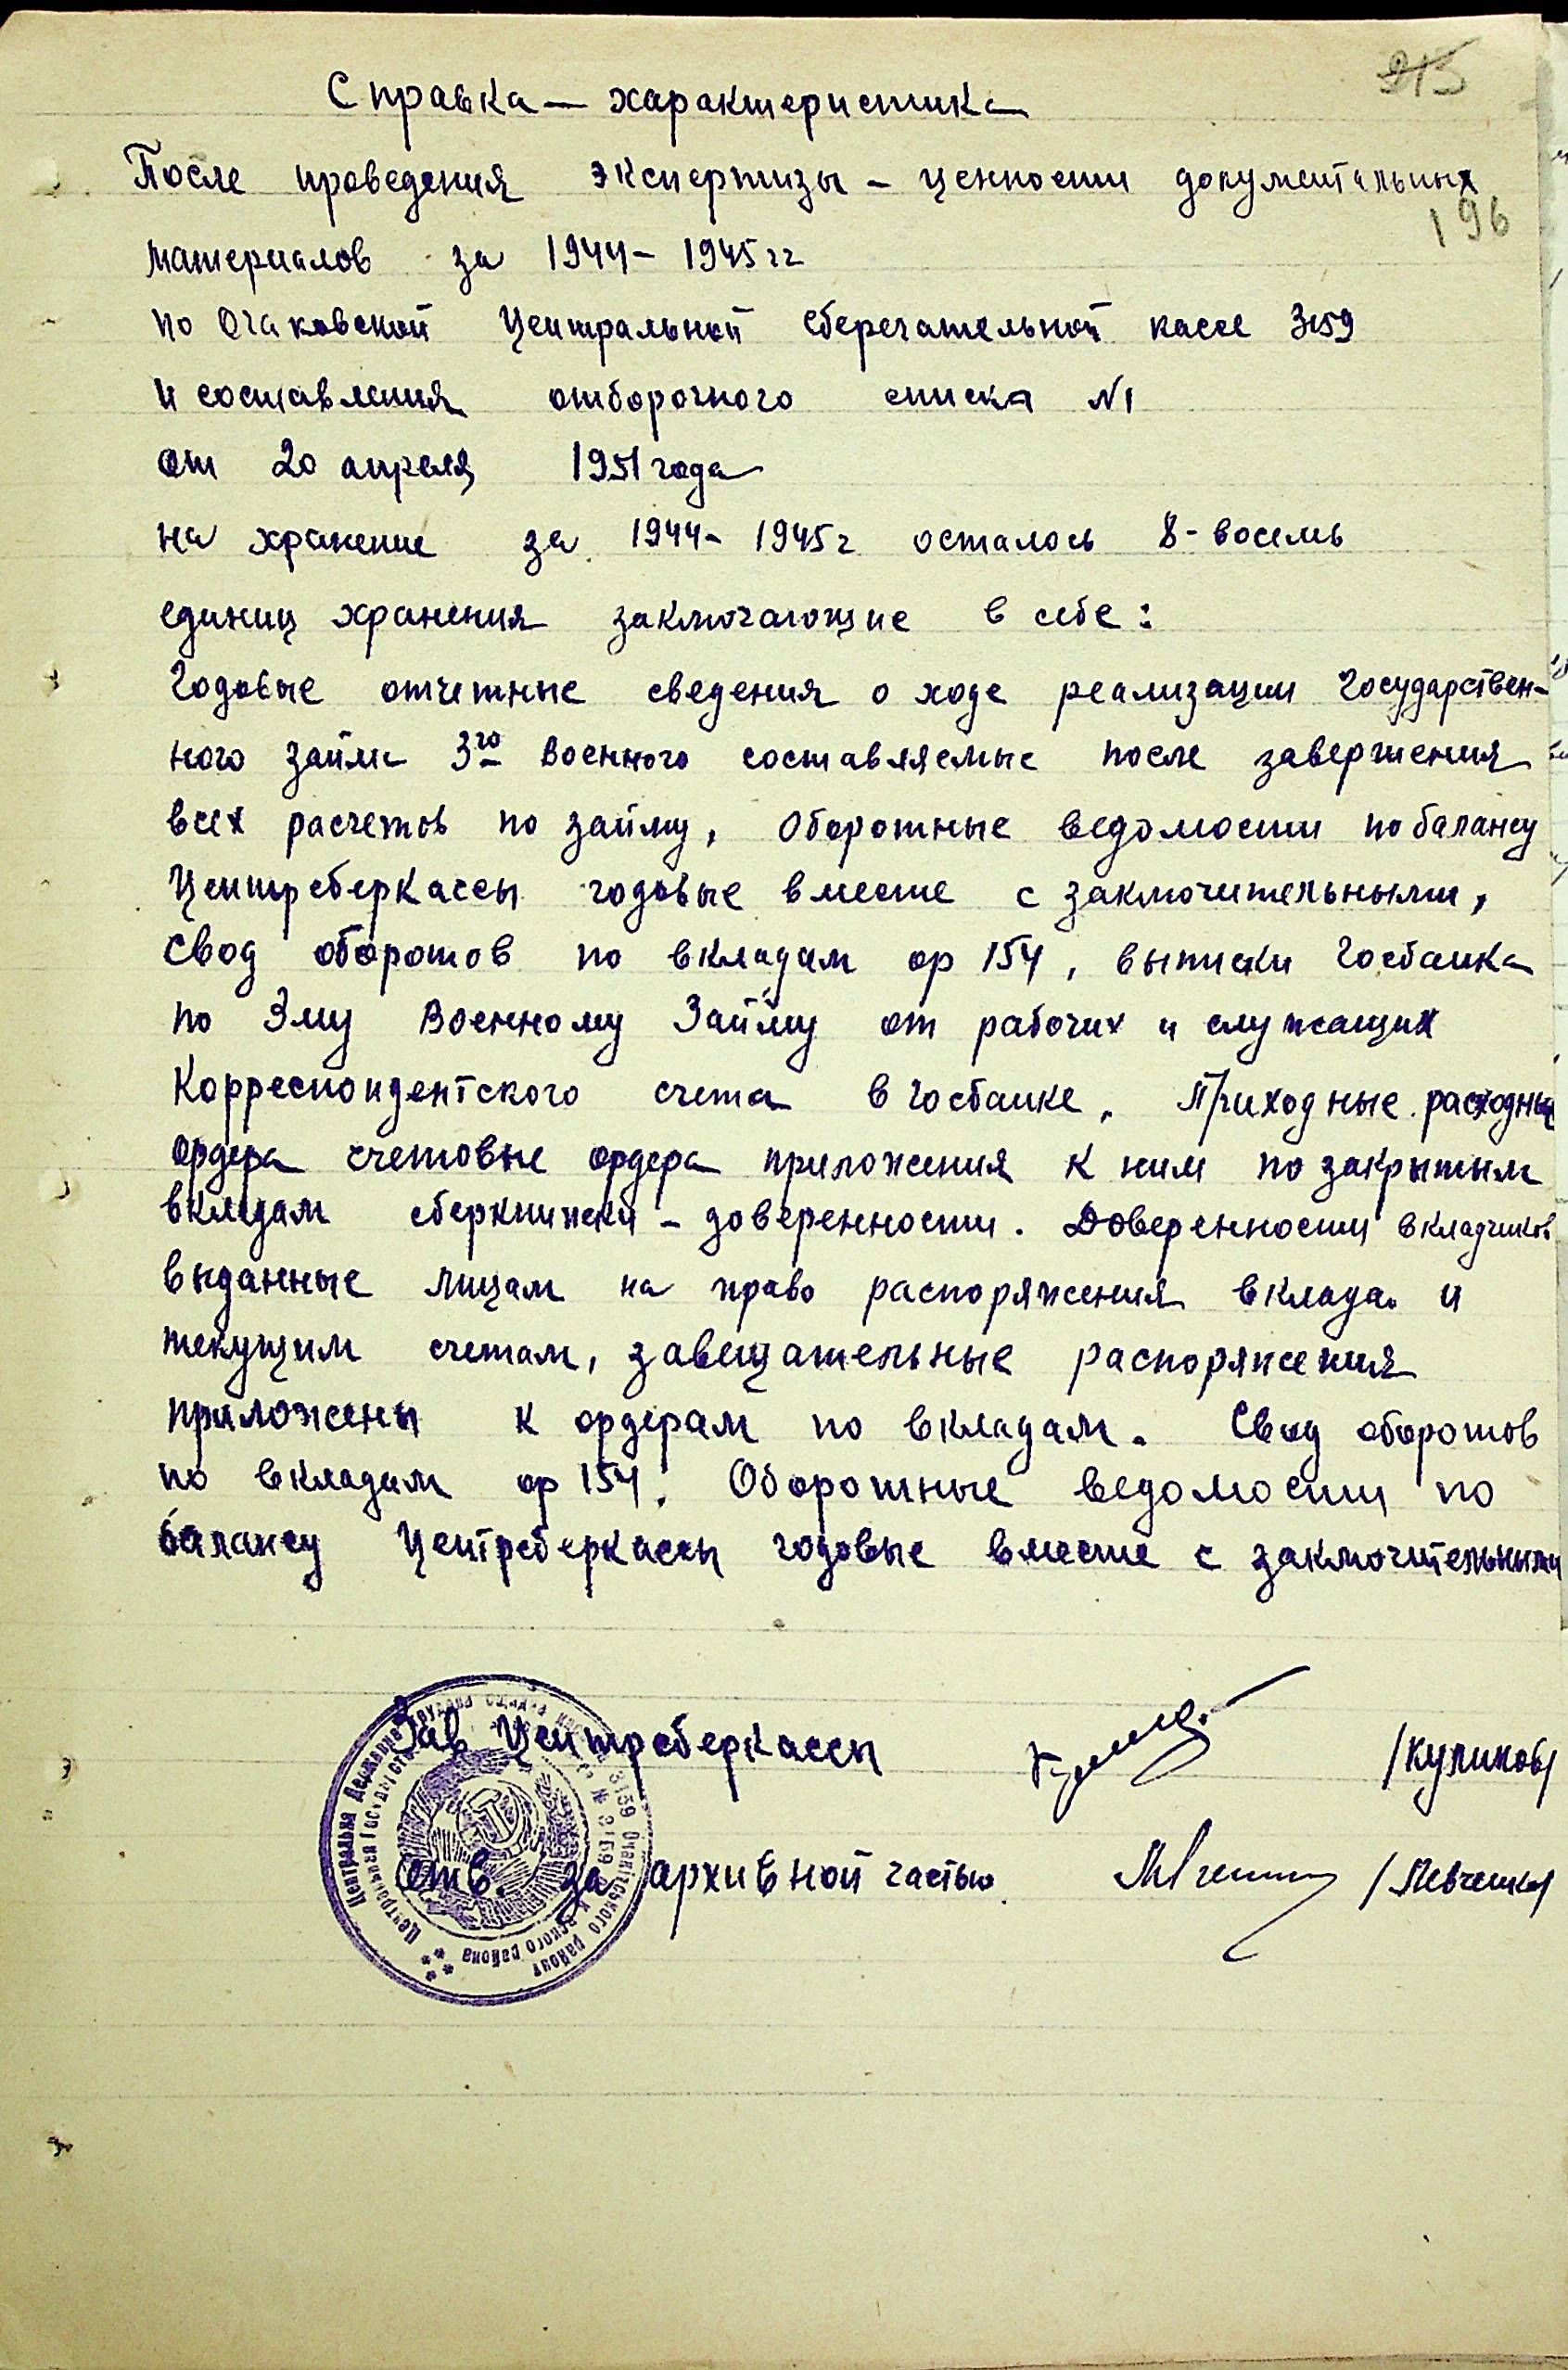 215
Справка — характеристика
После проведения экспертизы – ценности документальных
196
материалов за 1944 – 1945 гг
по Очаковской Центральной сберегательной кассе 3159
и составления отборочного списка N1
от 20 апреля 1951 года
на хранение за 1944 – 1945 г осталось 8 - восемь
единиц хранения заключающие в себе:
Годовые отчетные сведения о ходе реализации Государствен-
ного займа 3го Военного составляемые после завершения
всех расчетов по займу, Оборотные ведомости по балансу
Центрсберкассы годовые вместе с заключительными,
Свод оборотов по вкладам ор 154, выписки Госбанка
по 3му Военному Займу от рабочих и служащих
Корреспондентского счета в Госбанке. Приходные расходные
ордера счетовые ордера приложения к ним по закрытым
вкладам сберкнижки – доверенности. Доверенности вкладчиков
выданные лицам на право распоряжения вклада. и
текущим счетам, завещательные распоряжения
приложены к ордерам по вкладам. Свод оборотов
по вкладам ор 154. Оборотные ведомости по
балансу Центрсберкассы годовые вместе с заключительными
Зав Центрсберкассы /Куликов/
отв. за архивной частью /Левченко/
Центральна Державна трудова ощадна 3159 Очаківського району
Центральная № 3159 района